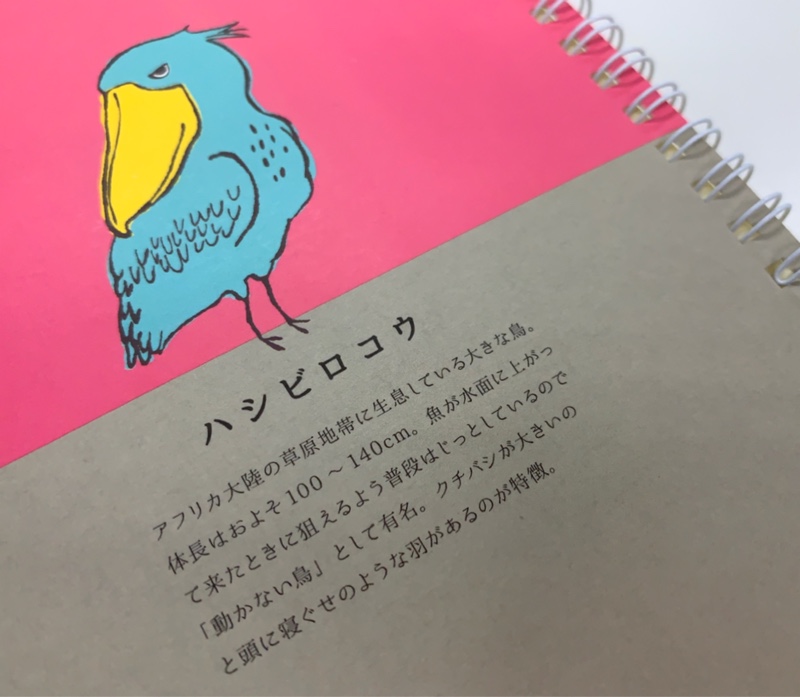 ハシビロコウ
アフリカ大陸の草原地帯に生息している大きな鳥。
体長はおよそ100～140cm。魚が水面に上がっ
て来たときに狙えるよう普段はじっとしているので
「動かない鳥」として有名。クチバシが大きいの
と頭に寝ぐせのような羽があるのが特徴。